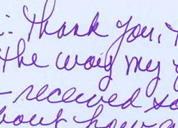 : Thank you,
the way my
received so
about how